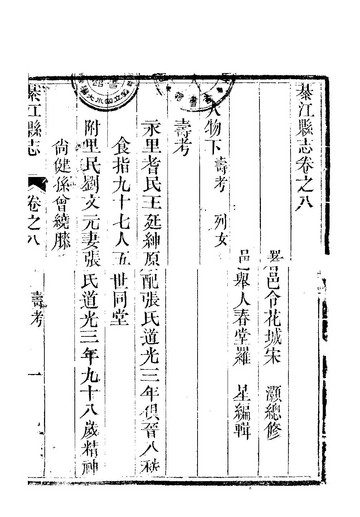 綦江縣志卷之八
署邑令花城宋　灝總修
邑舉人春堂羅　星編輯
人物下 壽考 列女
壽考
永里耆民王廷紳原配張氏道光三年俱晉八秩
食指九十七人五世同堂
附里民劉文元妻張氏道光三年九十八歲精神
尚健孫曾繞膝
綦江縣志　卷之八　壽考　一